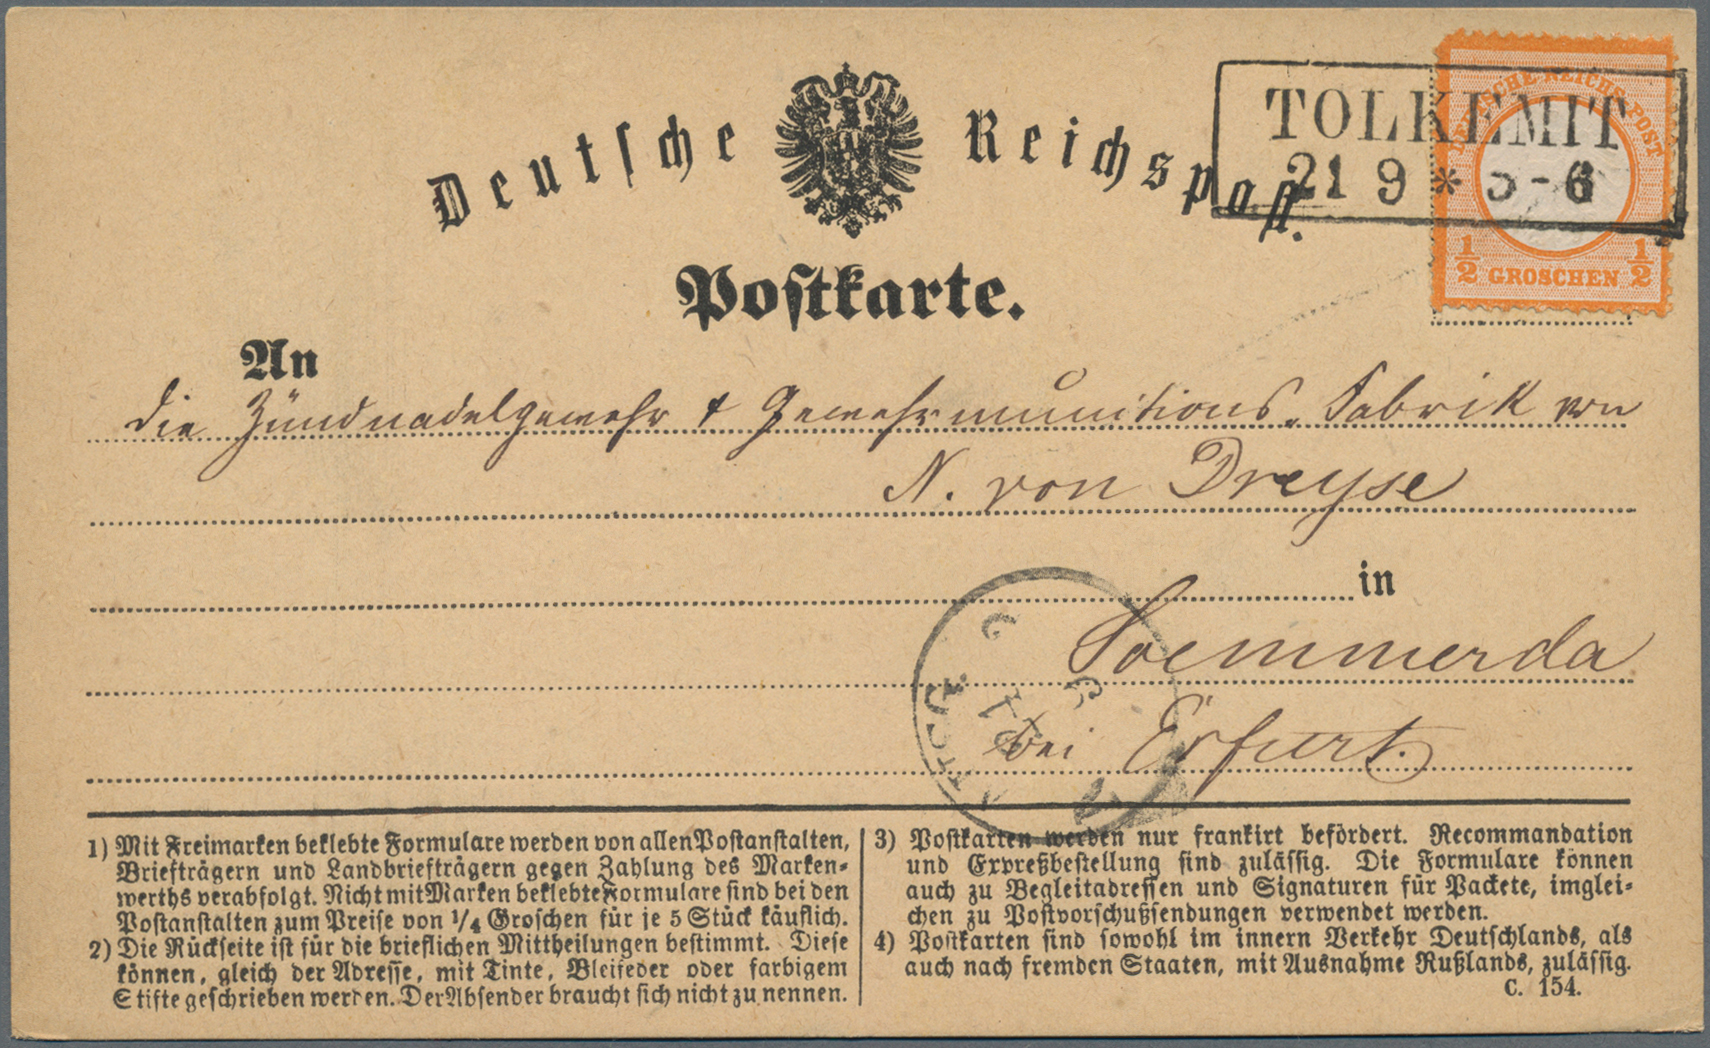 Deutsche Reichspost.
TOLKEMIT
21 9 * 5-6
DEUTSCHE REICHS-POST
1/2 GROSCHEN 1/2
Postkarte.
An
die Zündnadelgewehr & Gewehrmunitions-Fabrik von
N. von Dreyse
in
Soemmerda
bei Erfurt.
1) Mit Freimarken beklebte Formulare werden von allen Postanstalten,
Briefträgern und Landbriefträgern gegen Zahlung des Marken-
werths verabfolgt. Nicht mit Marken beklebte Formulare sind bei den
Postanstalten zum Preise von 1/4 Groschen für je 5 Stück käuflich.
2) Die Rückseite ist für die brieflichen Mittheilungen bestimmt. Diese
können, gleich der Adresse, mit Tinte, Bleifeder oder farbigem
Stifte geschrieben werden. Der Absender braucht sich nicht zu nennen.
3) Postkarten werden nur frankirt befördert. Recommandation
und Expreßbestellung sind zulässig. Die Formulare können
auch zu Begleitadressen und Signaturen für Packete, imglei-
chen zu Postvorschußsendungen verwendet werden.
4) Postkarten sind sowohl im innern Verkehr Deutschlands, als
auch nach fremden Staaten, mit Ausnahme Rußlands, zulässig.
C. 154.